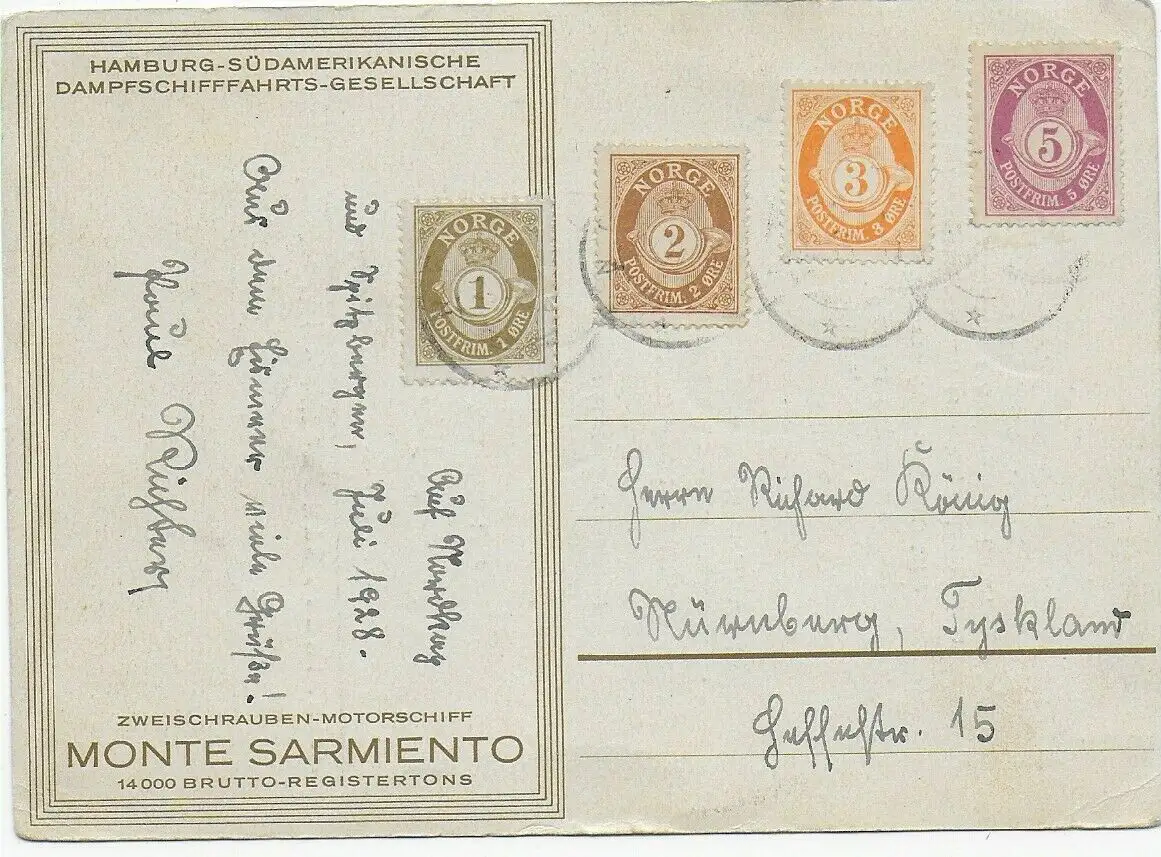 HAMBURG-SÜDAMERIKANISCHE
DAMPFSCHIFFFAHRTS-GESELLSCHAFT
Auf Nordkap
und Spitzbergen, Juli 1928.
Aus dem Eismeer viele Grüße!
Paul
ZWEISCHRAUBEN-MOTORSCHIFF
MONTE SARMIENTO
14000 BRUTTO-REGISTERTONS
NORGE
1
POSTFRIM. 1 ØRE
NORGE
2
POSTFRIM. 2 ØRE
NORGE
3
POSTFRIM. 3 ØRE
NORGE
5
POSTFRIM. 5 ØRE
Herrn Richard König
Nürnberg, Tyskland
Hessestr. 15